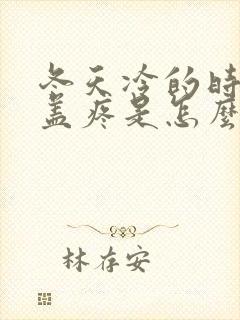 冬天冷的时
盖疼是怎麼
林存安